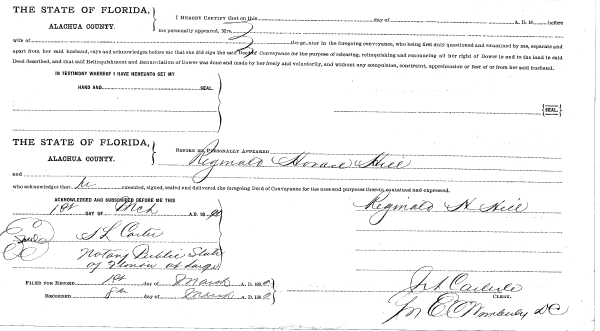 THE STATE OF FLORIDA,
ALACHUA COUNTY.
I HEREBY CERTIFY that on this day of A. D. 18 before
me personally appeared, Mrs.
wife of the grantor in the foregoing conveyance, who being first duly questioned and examined by me, separate and
apart from her said husband, says and acknowledges before me that she did sign the said Deed of Conveyance for the purpose of releasing, relinquishing and renouncing all her right of Dower in and to the land in said
Deed described, and that said Relinquishment and Renunciation of Dower was done and made by her freely and voluntarily, and without any compulsion, constraint, apprehension or fear of or from her said husband.
IN TESTIMONY WHEREOF I HAVE HEREUNTO SET MY
HAND AND SEAL.
SEAL.
THE STATE OF FLORIDA,
ALACHUA COUNTY.
BEFORE ME PERSONALLY APPEARED
Reginald Horace Hill
and
who acknowledges that he executed, signed, sealed and delivered the foregoing Deed of Conveyance for the uses and purposes therein contained and expressed.
ACKNOWLEDGED AND SUBSCRIBED BEFORE ME THIS
1st DAY OF Mch A.D. 18
Reginald H Hill
S L Carter
Notary Public State
of Florida at Large
FILED FOR RECORD 1st day of March A. D. 18
RECORDED day of March A. D. 18
Carlisle
CLERK.
DC